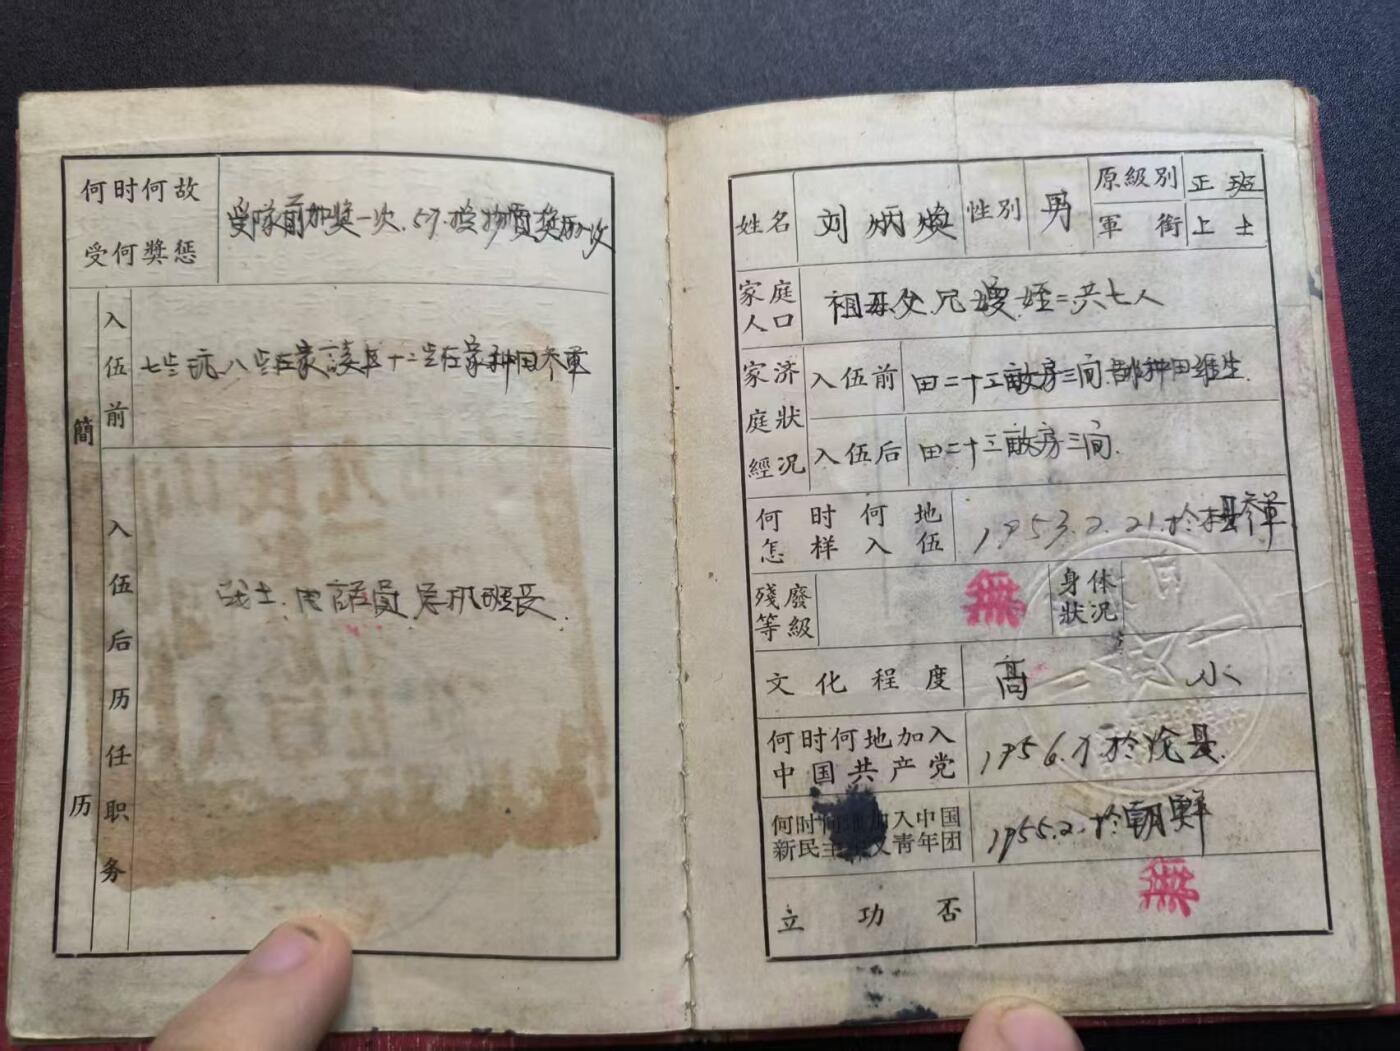 何时何故
受何獎惩
受隊前加奖一次.57.受物質奖励一次
簡历
入伍前
七岁玩八岁在家讀书十二岁在家种田参軍
入伍后历任职务
战士.电話員 总机班長.
姓名
刘炳焕
性別
男
原級別
正班
軍銜
上士
家庭人口
祖母父.兄嫂姪二共七人
家庭經济狀况
入伍前
田二十三畝房三间.都种田維生.
入伍后
田二十三畝房三间.
何时何地怎样入伍
1953.2.21.於本县参軍
殘廢等級
無
身体狀况
文化程度
高小
何时何地加入中国共产党
1956.7於沧县.
何时何地加入中国新民主主义青年团
1955.2.於朝鮮
立功否
無